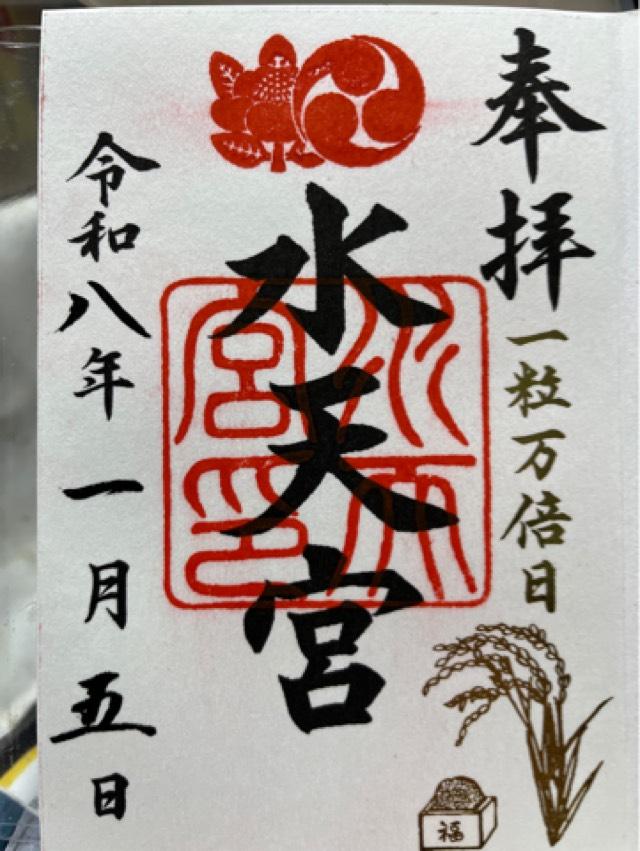 奉拝
一粒万倍日
福
水天宮
水天宮印
令和八年一月五日